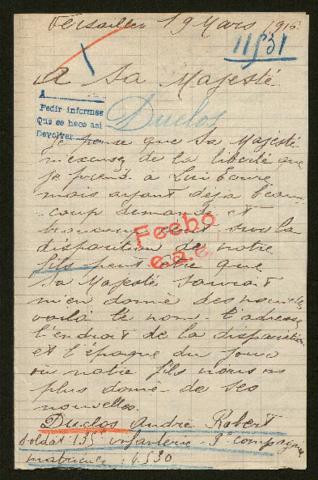 Versailles 19 Mars 1916
11531
A Sa Majesté
A
Pedir informes
Que se hace así
Devolver
Duclos
Je pense que Sa Majésté
m'excuse de la liberté que
je prends a Lui Ecrire
mais ayant déja beau
coup demandé et
sur la
disparition de notre
fils peut etre que
Sa Majesté saurait
m'en donné des nouvelles
voilà le nom l'adresse
l'endroit de la disparition
et l'époque du jour
ou notre fils nous a
plus donné de ses
nouvelles.
Fecho
e.a.c.
Duclos André Robert
soldat 135e infanterie 9e compagnie
matricule 6530